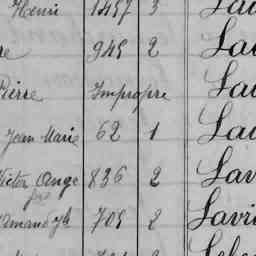 Henri 1457 3 Lau
re 945 2 Lau
Pierre Impropre Lau
Jean Marie 62 1 Lau
Victor Ange 836 2 Lav
Amand Jh 705 2 Lavi